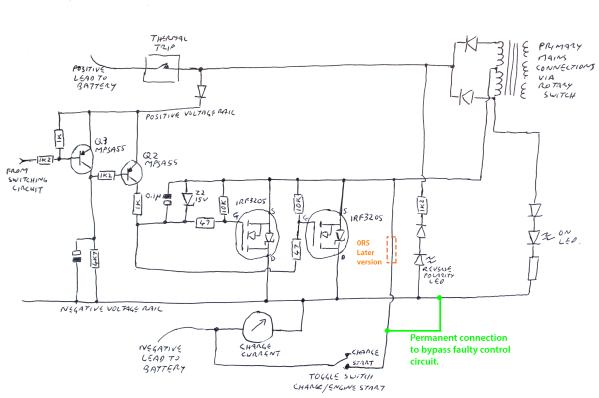 THERMAL
TRIP
POSITIVE
LEAD TO
BATTERY
PRIMARY
MAINS
CONNECTIONS
VIA
ROTARY
SWITCH
POSITIVE VOLTAGE RAIL
1K
Q3
MPSA55
1K2
FROM
SWITCHING
CIRCUIT
Q2
MPSA55
1K2
1K
0.1µ
Z2
15V
10K
IRF3205
10K
IRF3205
G
S
D
G
S
D
47
47
0R5
Later
version
1K2
ON
LED.
4K7
REVERSE
POLARITY
LED
NEGATIVE VOLTAGE RAIL
NEGATIVE
LEAD TO
BATTERY
CHARGE
CURRENT
CHARGE
START
TOGGLE SWITCH
CHARGE/ENGINE START
Permanent connection
to bypass faulty control
circuit.